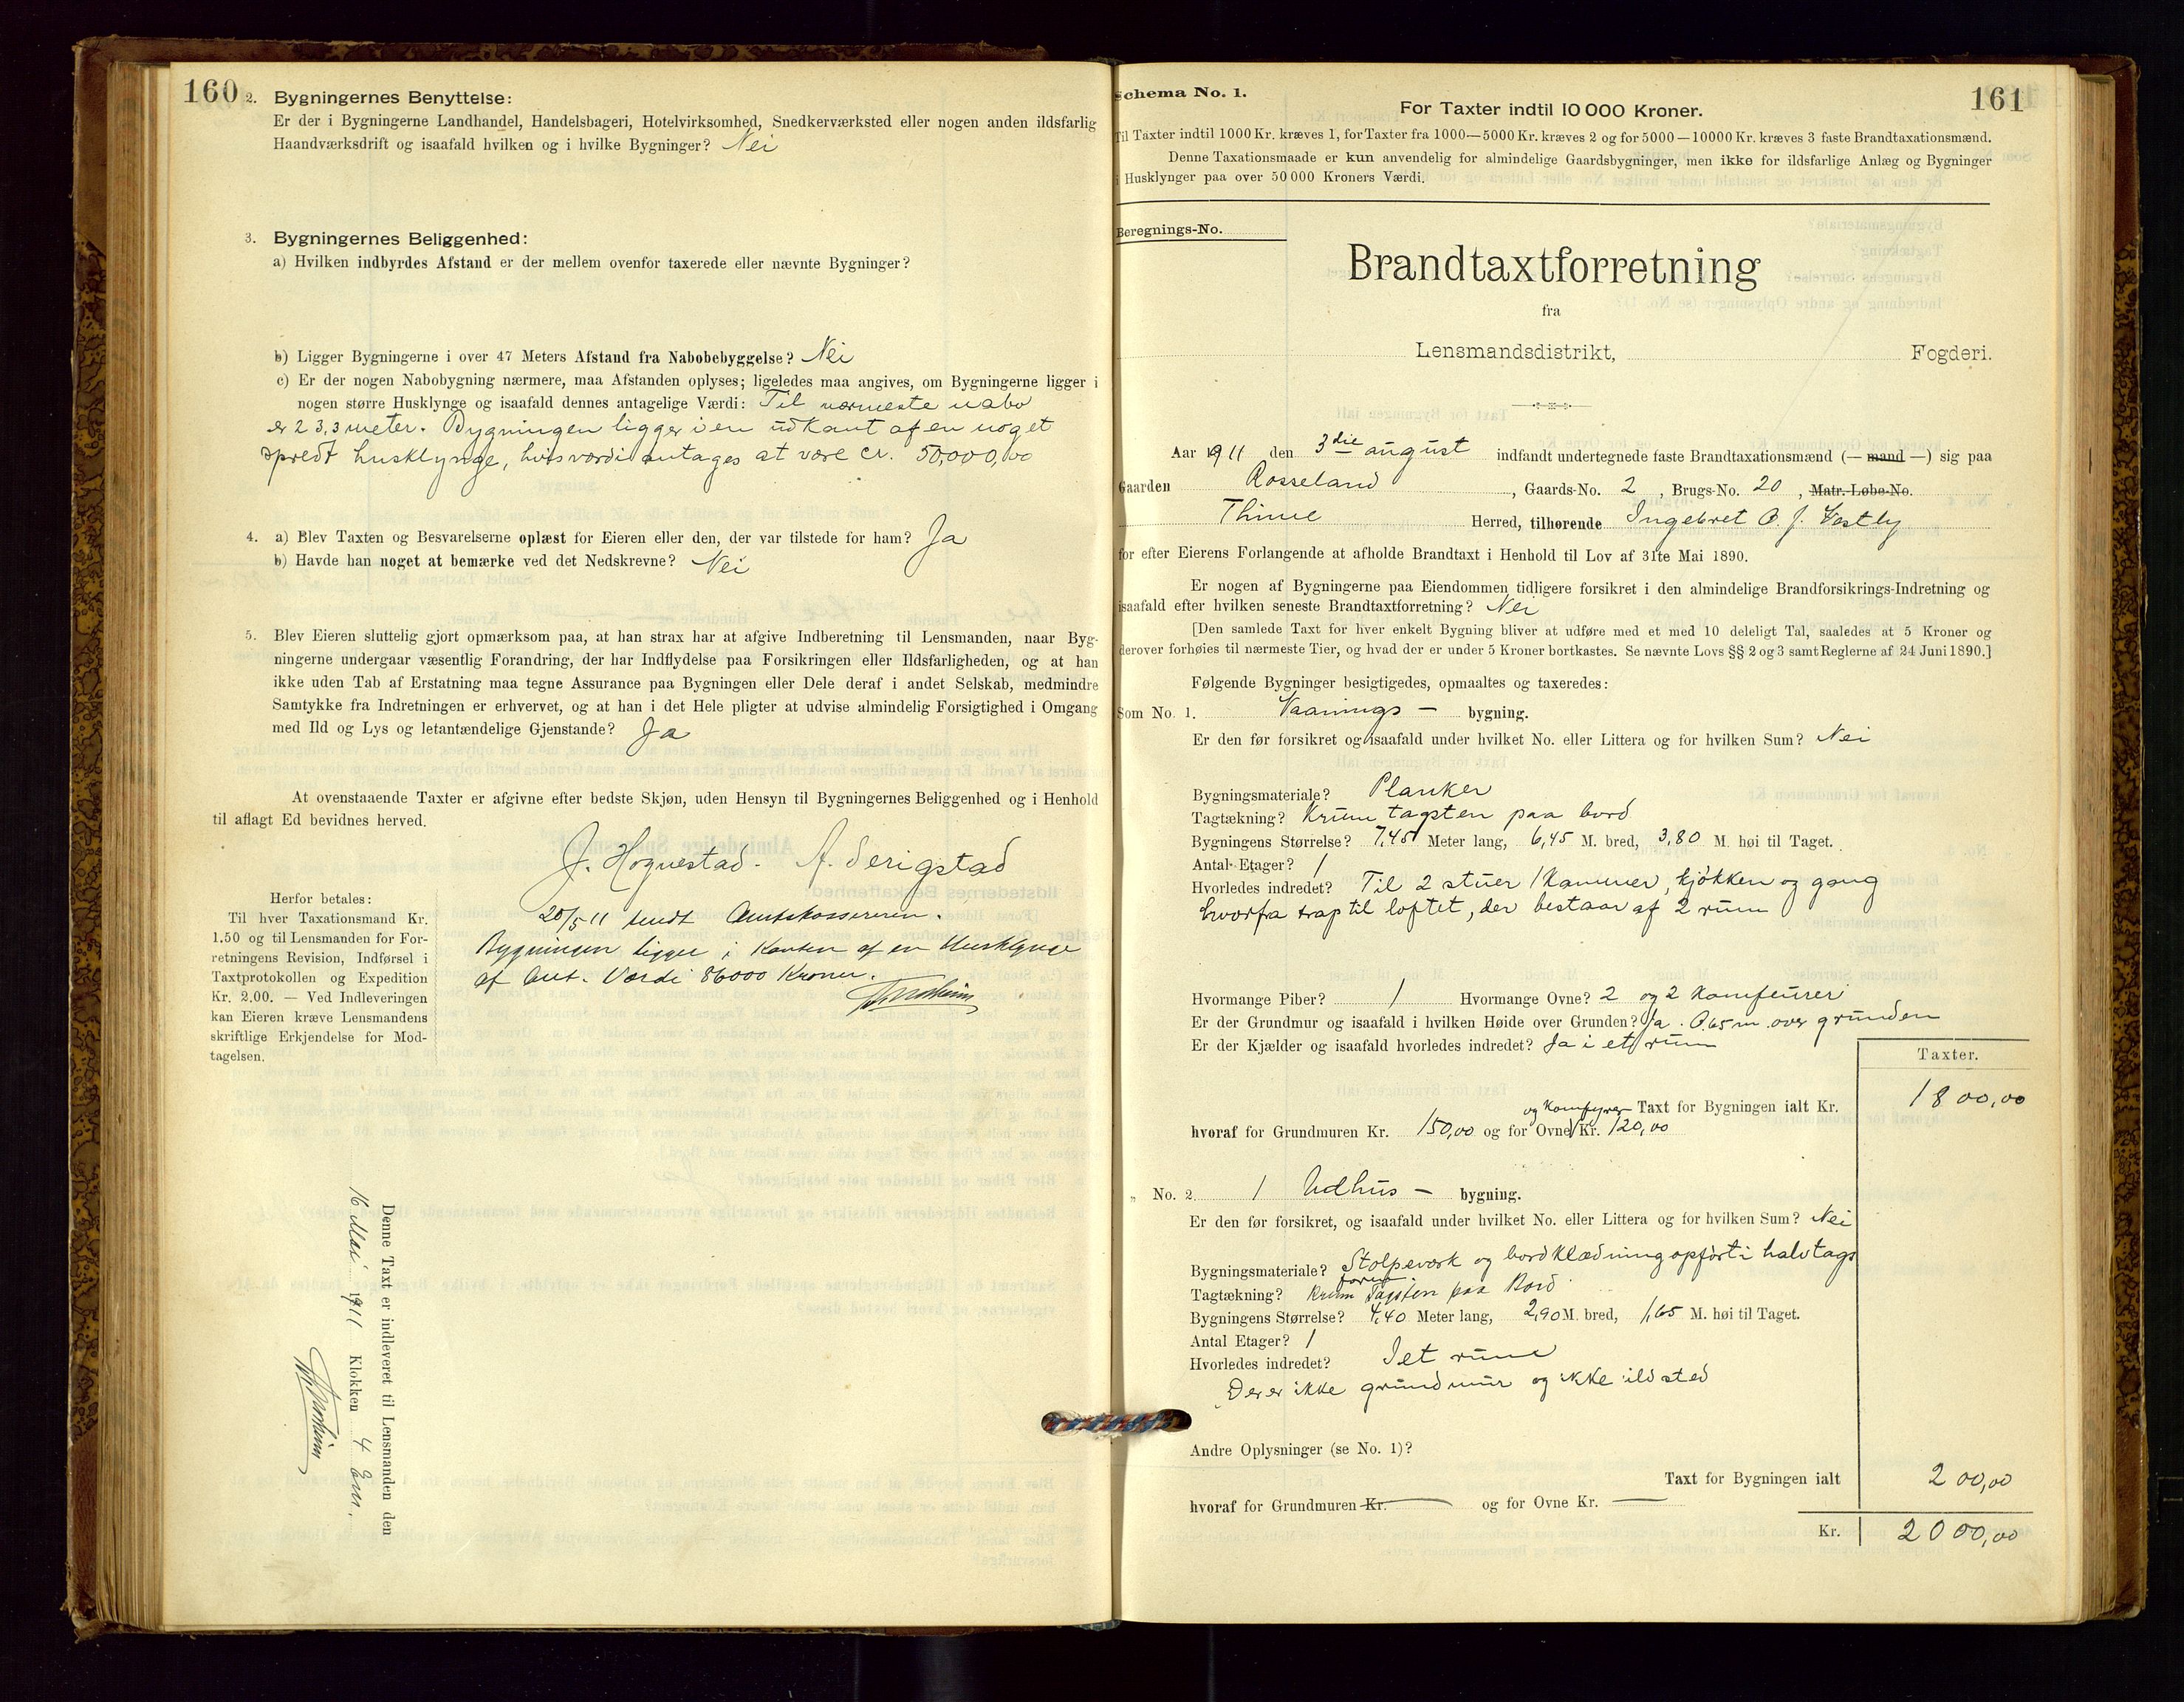 160
2. Bygningernes Benyttelse:
Er der i Bygningerne Landhandel, Handelsbageri, Hotelvirksomhed, Snedkerværksted eller nogen anden ildsfarlig
Haandværksdrift og isaafald hvilken og i hvilke Bygninger? Nei
3. Bygningernes Beliggenhed:
a) Hvilken indbyrdes Afstand er der mellem ovenfor taxerede eller nævnte Bygninger?
b) Ligger Bygningerne i over 47 Meters Afstand fra Nabobebyggelse? Nei
c) Er der nogen Nabobygning nærmere, maa Afstanden oplyses; ligeledes maa angives, om Bygningerne ligger i
nogen større Husklynge og isaafald dennes antagelige Værdi: Til nærmeste nabo
er 23,3 meter. Bygningen ligger i en udkant af en noget
spredt husklynge, hvis værdi antages at være cr. 50,000,00
4. a) Blev Taxten og Besvarelserne oplæst for Eieren eller den, der var tilstede for ham? Ja
b) Havde han noget at bemærke ved det Nedskrevne? Nei
5. Blev Eieren sluttelig gjort opmærksom paa, at han strax har at afgive Indberetning til Lensmanden, naar Byg-
ningerne undergaar væsentlig Forandring, der har Indflydelse paa Forsikringen eller Ildsfarligheden, og at han
ikke uden Tab af Erstatning maa tegne Assurance paa Bygningen eller Dele deraf i andet Selskab, medmindre
Samtykke fra Indretningen er erhvervet, og at han i det Hele pligter at udvise almindelig Forsigtighed i Omgang
med Ild og Lys og letantændelige Gjenstande? Ja
At ovenstaaende Taxter er afgivne efter bedste Skjøn, uden Hensyn til Bygningernes Beliggenhed og i Henhold
til aflagt Ed bevidnes herved.
J. Hognestad. A. Serigstad
Herfor betales:
Til hver Taxationsmand Kr.
1.50 og til Lensmanden for For-
retningens Revision, Indførsel i
Taxtprotokollen og Expedition
Kr. 2.00. — Ved Indleveringen
kan Eieren kræve Lensmandens
skriftlige Erkjendelse for Mod-
tagelsen.
20/5 11 sendt Amtskassereren.
Bygningen ligger i Kanten af en Husklynge
af Ant. Værdi 86000 Kroner.
Denne Taxt er indleveret til Lensmanden den
16 Mai 1911 Klokken 4 Em.
161
Schema No. 1.
For Taxter indtil 10 000 Kroner.
Til Taxter indtil 1000 Kr. kræves 1, for Taxter fra 1000—5000 Kr. kræves 2 og for 5000—10000 Kr. kræves 3 faste Brandtaxationsmænd.
Denne Taxationsmaade er kun anvendelig for almindelige Gaardsbygninger, men ikke for ildsfarlige Anlæg og Bygninger
i Husklynger paa over 50 000 Kroners Værdi.
Beregnings-No.
Brandtaxtforretning
fra
Lensmandsdistrikt, Fogderi.
Aar 1911 den 3die august indfandt undertegnede faste Brandtaxationsmænd (— mand —) sig paa
Gaarden Rosseland, Gaards-No. 2, Brugs-No. 20, Matr.-Løbe-No.
Thime Herred, tilhørende Ingebret O. J. Vestly
for efter Eierens Forlangende at afholde Brandtaxt i Henhold til Lov af 31te Mai 1890.
Er nogen af Bygningerne paa Eiendommen tidligere forsikret i den almindelige Brandforsikrings-Indretning og
isaafald efter hvilken seneste Brandtaxtforretning? Nei
[Den samlede Taxt for hver enkelt Bygning bliver at udføre med et med 10 deleligt Tal, saaledes at 5 Kroner og
derover forhøies til nærmeste Tier, og hvad der er under 5 Kroner bortkastes. Se nævnte Lovs §§ 2 og 3 samt Reglerne af 24 Juni 1890.]
Følgende Bygninger besigtigedes, opmaaltes og taxeredes:
Som No. 1. Vaanings — bygning.
Er den før forsikret og isaafald under hvilket No. eller Littera og for hvilken Sum? Nei
Bygningsmateriale? Planker
Tagtækning? Krum tagsten paa bord
Bygningens Størrelse? 7,45 Meter lang, 6,45 M. bred, 3,80 M. høi til Taget.
Antal Etager? 1
Hvorledes indredet? Til 2 stuer 1 kammer, kjøkken og gang
hvorfra trap til loftet, der bestaar af 2 rum
Hvormange Piber? 1 Hvormange Ovne? 2 og 2 komfeurer
Er der Grundmur og isaafald i hvilken Høide over Grunden? Ja. 0,65 m over grunden
Er der Kjælder og isaafald hvorledes indredet? Ja i et rum
Taxter.
og Komfyrer Taxt for Bygningen ialt Kr. 1800,00
hvoraf for Grundmuren Kr. 150,00 og for Ovne Kr. 120,00
„ No. 2. 1 Udhus — bygning.
Er den før forsikret, og isaafald under hvilket No. eller Littera og for hvilken Sum? Nei
Bygningsmateriale? Stolpeverk og bordklædning opført i halvtags
form.
Tagtækning? Krum Tagsten paa Bord
Bygningens Størrelse? 4,40 Meter lang, 2,90 M. bred, 1,65 M. høi til Taget.
Antal Etager? 1
Hvorledes indredet? I et rum
Der er ikke grundmur og ikke ildsted
Andre Oplysninger (se No. 1)?
Taxt for Bygningen ialt 200,00
hvoraf for Grundmuren Kr. — og for Ovne Kr. —
Kr. 2000,00